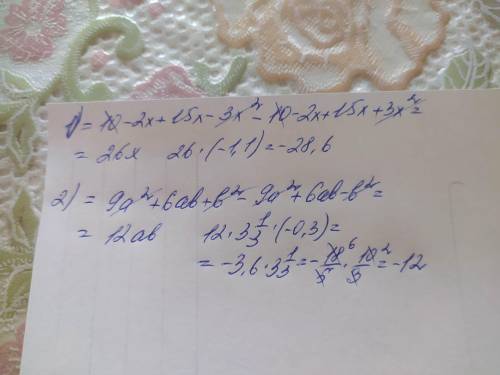 1) = 10-2x+15x-3x²-10-2x+15x+3x²=
= 26x 26·(-1,1)=-28,6
2) = 9a²+6ab+b²-9a²+6ab-b²=
= 12ab 12·3 1/3·(-0,3)=
= -3,6·3 1/3=-18/5·10/3=-12